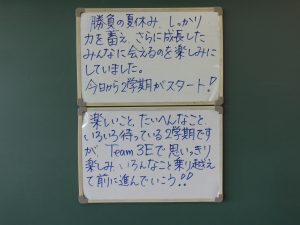 勝負の夏休み、しっかり
力を蓄え、さらに成長した
みんなに会えるのを楽しみに
していました。
今日から2学期がスタート!
楽しいこと、たいへんなこと、
いろいろ待っている2学期です
が Team 3Eで思いっきり
楽しみ いろんなこと乗り越え
て前に進んでいこう!!